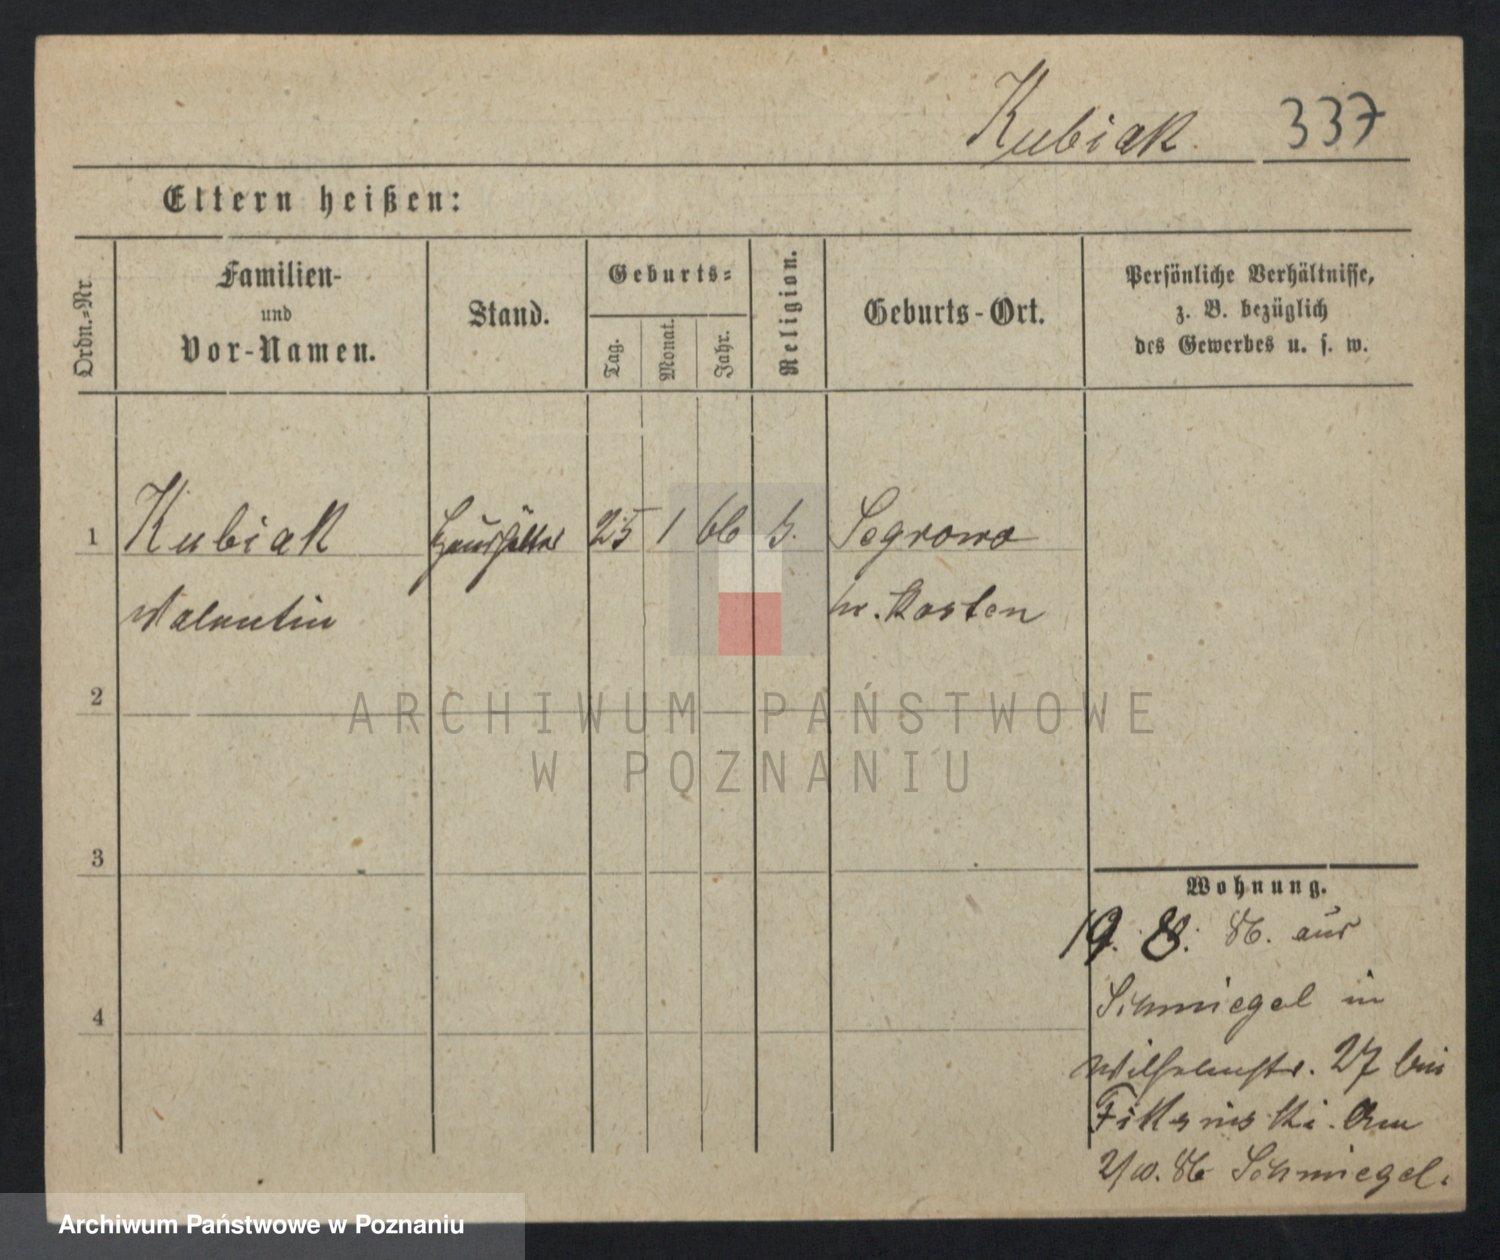 Kubiak. 337
Eltern heißen:
Ordn.-Nr.
Familien-
und
Vor-Namen.
Stand.
Geburts-
Tag.
Monat.
Jahr.
Religion.
Geburts-Ort.
Persönliche Verhältnisse,
z. B. bezüglich
des Gewerbes u. s. w.
1 Kubiak Haushälter 25 1 66 k. Segrowo
Valentin Kr. Kosten
2
3
4
Wohnung.
19. 8. 86. aus
Schmiegel in
Wilhelmstr. 27 bei
2/10. 86 Schmiegel.
ARCHIWUM PAŃSTWOWE
W POZNANIU
Archiwum Państwowe w Poznaniu